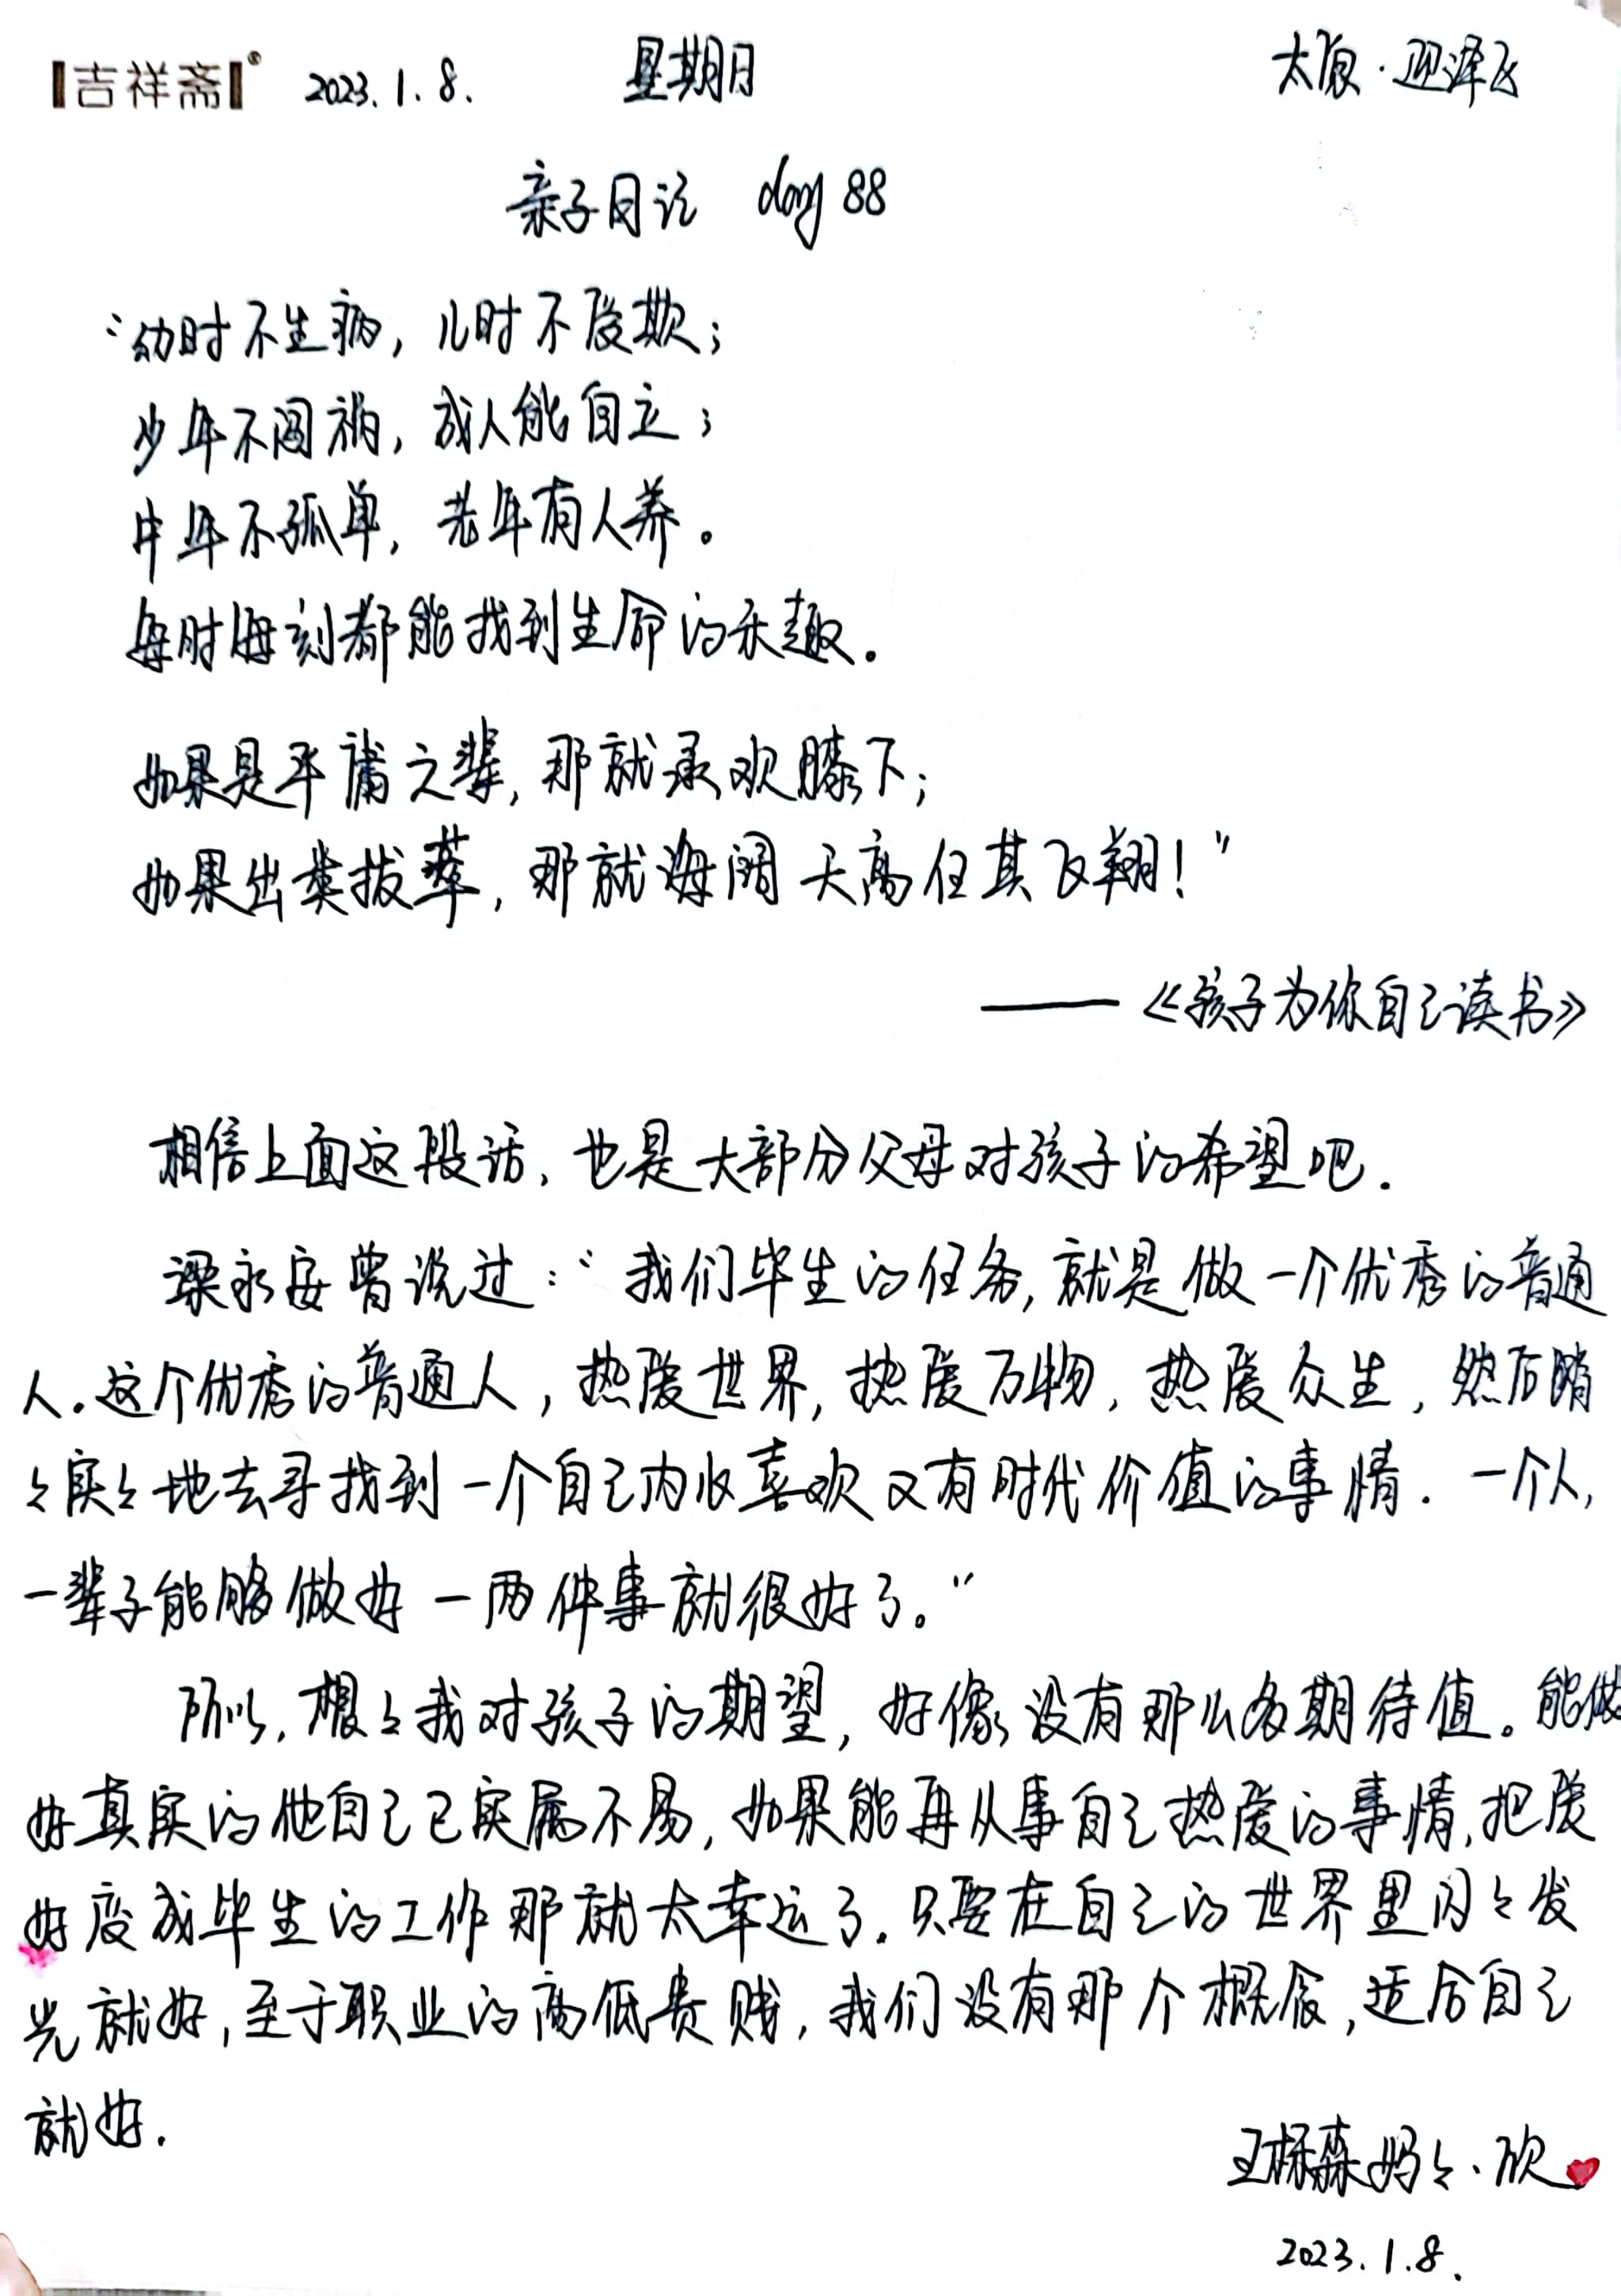 吉祥斋® 2023.1.8. 星期日 太原·迎泽区
亲子日记 day 88
“幼时不生病，儿时不受欺；
少年不闯祸，成人能自立；
中年不孤单，老年有人养。
每时每刻都能找到生命的乐趣。
如果是平庸之辈，那就承欢膝下；
如果出类拔萃，那就海阔天高任其飞翔！”
——《孩子为你自己读书》
相信上面这段话，也是大部分父母对孩子的希望吧.
梁永安曾说过：“我们毕生的任务，就是做一个优秀的普通
人。这个优秀的普通人，热爱世界，热爱万物，热爱众生，然后踏
々实々地去寻找到一个自己内心喜欢又有时代价值的事情. 一个人,
一辈子能够做好一两件事就很好了。”
所以，想々我对孩子的期望，好像没有那么多期待值。能做
好真实的他自己已实属不易，如果能再从事自己热爱的事情,把爱
好变成毕生的工作那就太幸运了.只要在自己的世界里闪々发
光就好,至于职业的高低贵贱，我们没有那个概念,适合自己
就好.
王栎森妈々、欣
2023.1.8.